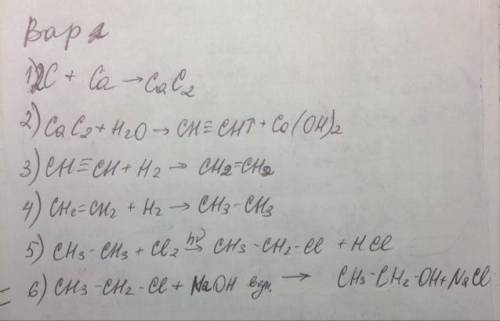 Вар 1
1) 2C + Ca → CaC₂
2) CaC₂ + H₂O → CH≡CH↑ + Ca(OH)₂
3) CH≡CH + H₂ → CH₂=CH₂
4) CH₂=CH₂ + H₂ → CH₃-CH₃
5) CH₃-CH₃ + Cl₂ hν→ CH₃-CH₂-Cl + HCl
6) CH₃-CH₂-Cl + NaOH водн. → CH₃-CH₂-OH + NaCl